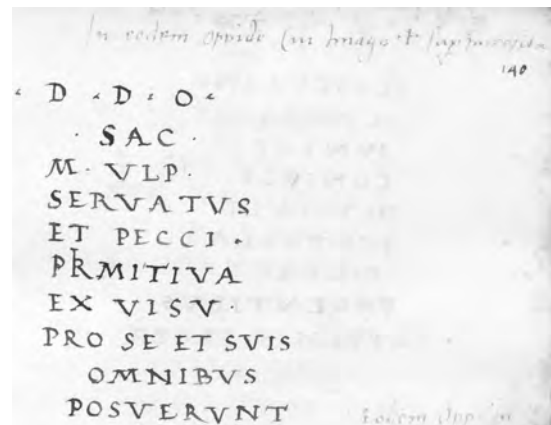 In eodem oppido
140
· D · D · O ·
· SAC ·
M · VLP ·
SERVATVS
ET PECCI ·
PRIMITIVA
EX VISV ·
PRO SE ET SVIS
OMNIBVS
POSVERVNT
Eodem Oppido